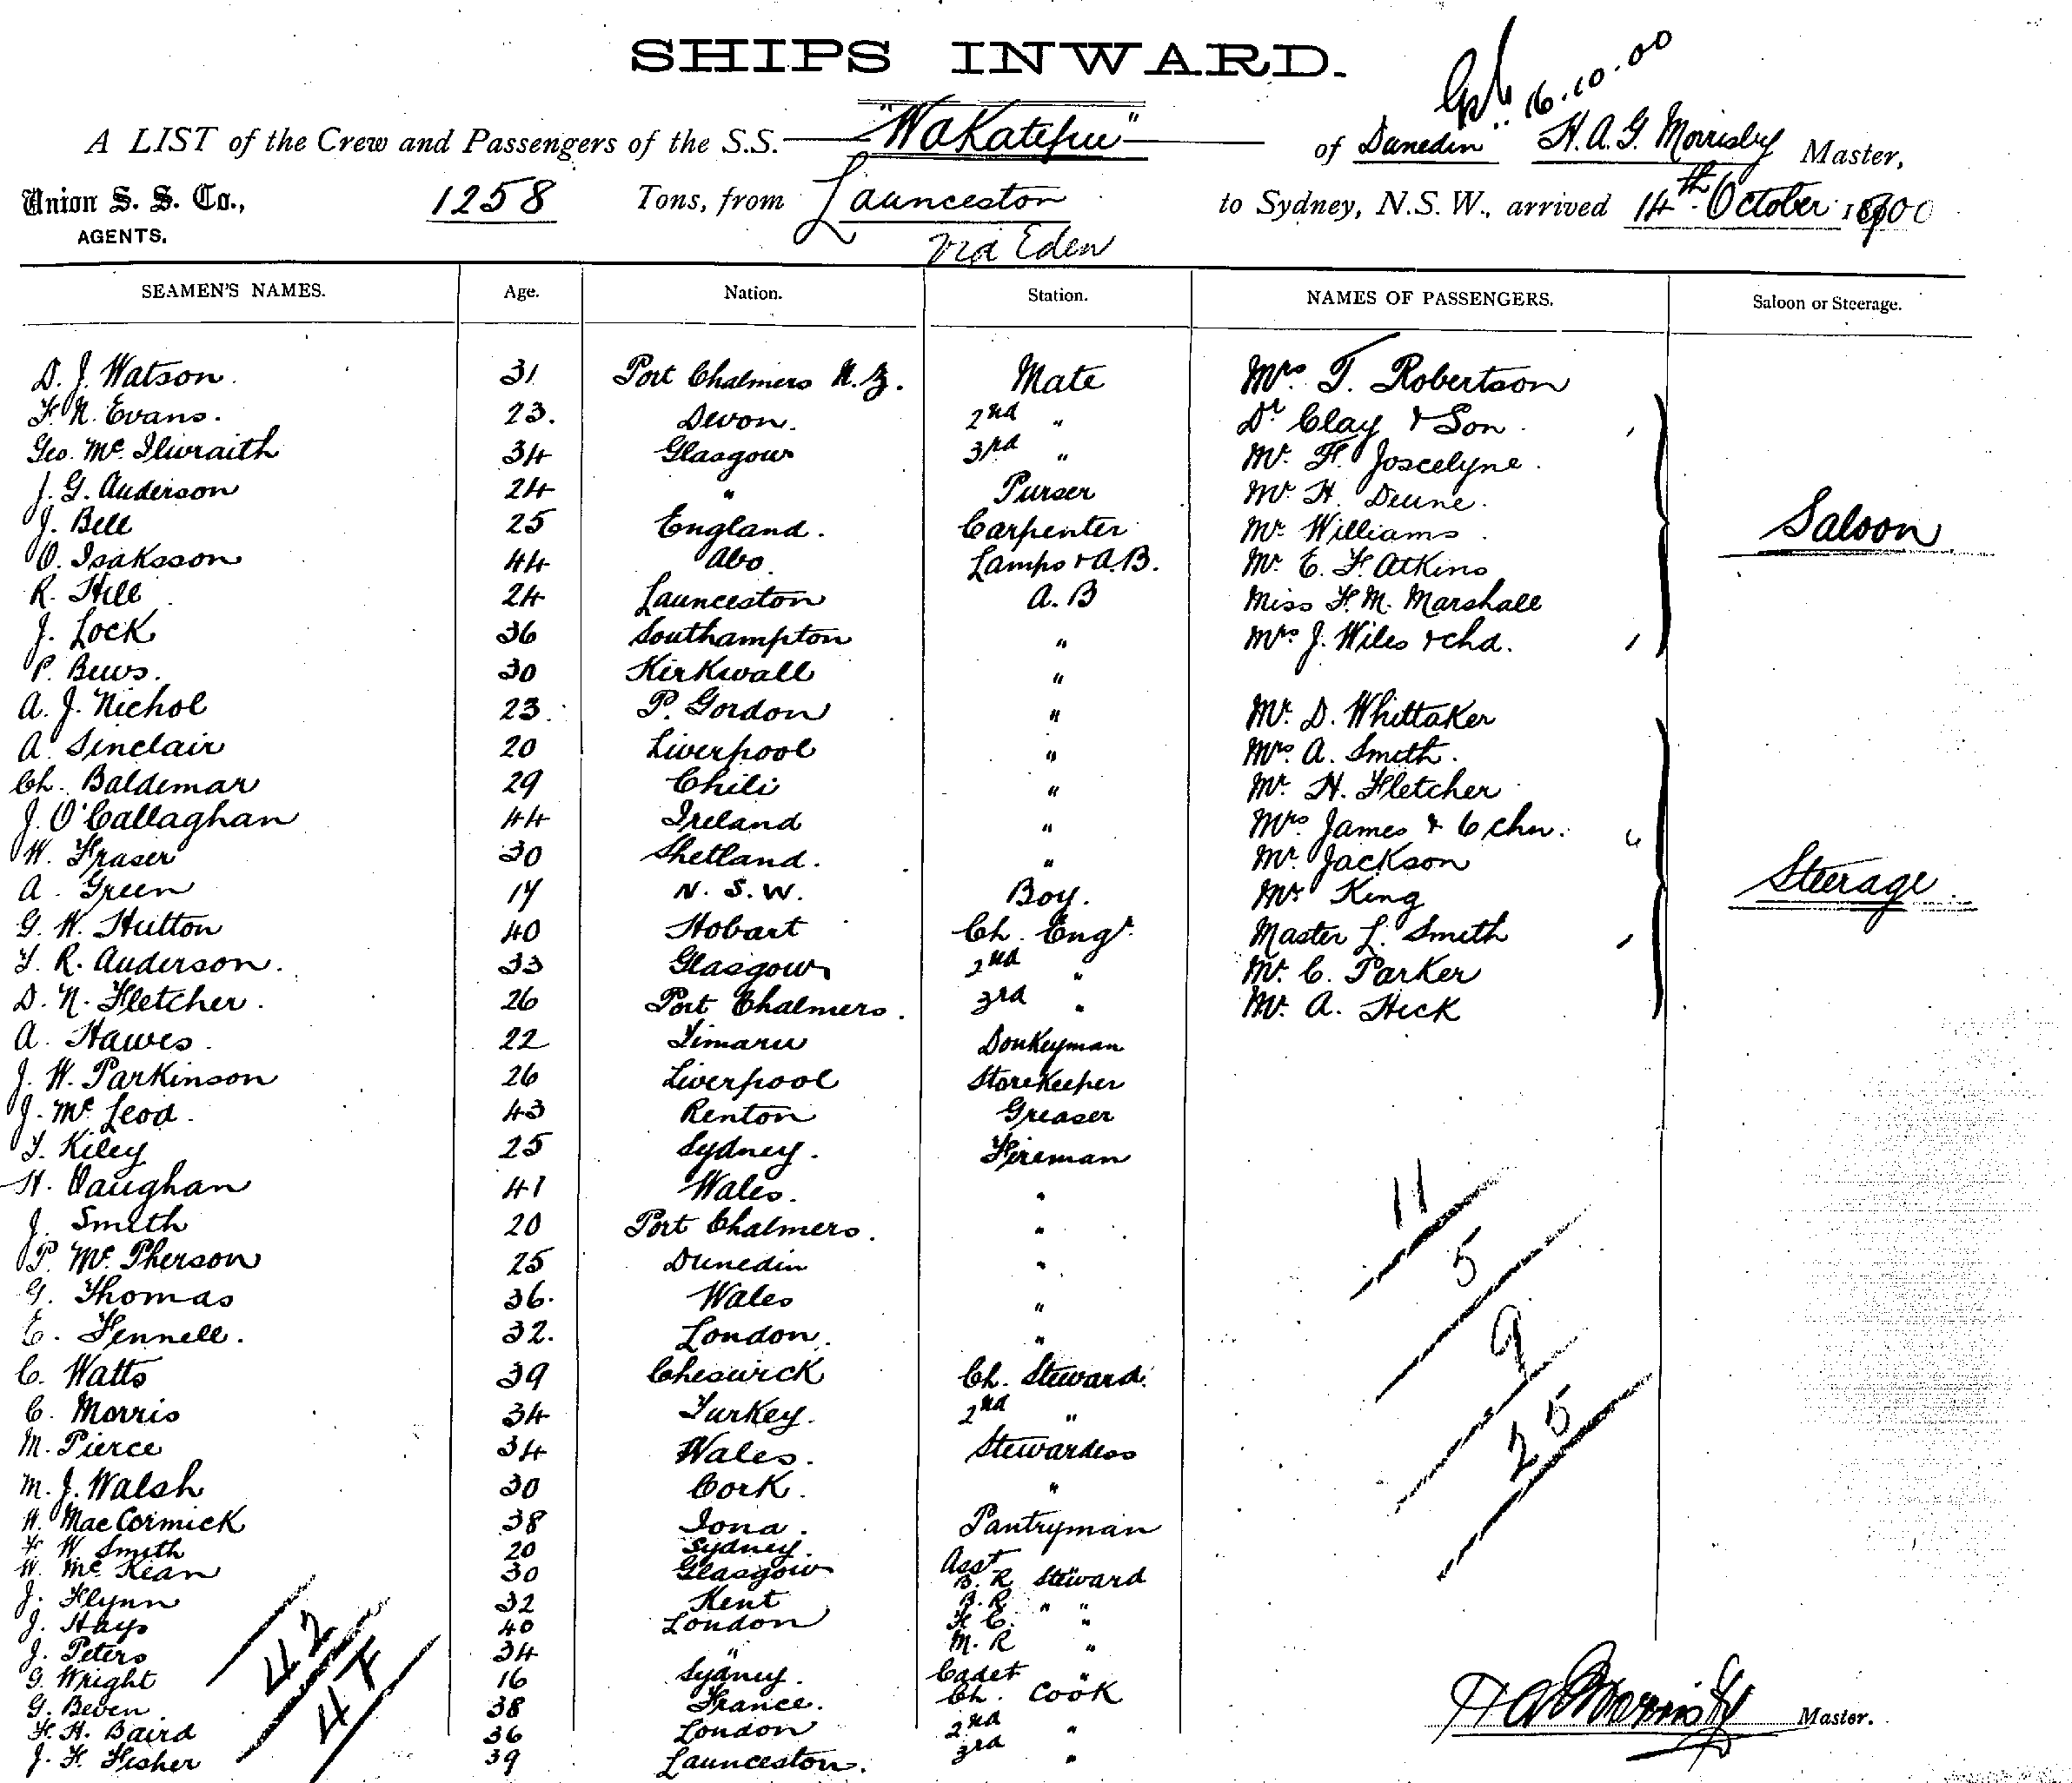 SHIPS INWARD.
16.10.00
A LIST of the Crew and Passengers of the S.S. "Wakatipu" of Dunedin H. A. G. Morrisby Master,
Union S. S. Co., AGENTS. 1258 Tons, from Launceston to Sydney, N.S.W., arrived 14th October 1900
via Eden
SEAMEN'S NAMES. Age. Nation. Station. NAMES OF PASSENGERS. Saloon or Steerage.
D. J. Watson. 31 Port Chalmers N.Z. Mate Mrs T. Robertson
F. N. Evans. 23. Devon. 2nd " Dr Clay & Son.
Geo. Mc Ilwraith 34 Glasgow 3rd " Mr. F. Joscelyne.
J. G. Anderson 24 " Purser Mr. H. Deune.
J. Bell 25 England. Carpenter Mr Williams Saloon
O. Isaksson 44 Abo. Lamps & A.B. Mr. E. F. Atkins
R. Hill 24 Launceston A.B Miss F. M. Marshall
J. Lock 36 Southampton " Mrs J. Wiles & chd.
P. Bews. 30 Kirkwall "
A. J. Nichol 23. P. Gordon " Mr. D. Whittaker
A. Sinclair 20 Liverpool " Mrs A. Smith.
Ch. Baldemar 29 Chili " Mr. H. Fletcher
J. O'Callaghan 44 Ireland " Mrs. James & 6 chn. 6
W. Fraser 30 Shetland. " Mr. Jackson
A. Green 17 N.S.W. Boy. Mr King Steerage.
G. W. Hutton 40 Hobart Ch. Engr. Master L. Smith
T. R. Anderson. 33 Glasgow 2nd " Mr. C. Parker
D. N. Fletcher. 26 Port Chalmers. 3rd " Mr. A. Heck
A. Hawes. 22 Timaru Donkeyman
J. W. Parkinson 26 Liverpool Storekeeper
J. Mc Leod. 43 Renton Greaser
T. Kiley 25 Sydney. Fireman
H. Vaughan 41 Wales. " 11
J. Smith 20 Port Chalmers. "
P. Mc Pherson 25 Dunedin " 5
G. Thomas 36. Wales "
E. Fennell. 32. London. " 9
C. Watts 39 Cheswick Ch. Steward.
C. Morris 34 Turkey. 2nd "
M. Pierce 34 Wales. Stewardess 25
M. J. Walsh 30 Cork. "
H. MacCormick 38 Iona. Pantryman
F W Smith 20 Sydney. Asst "
W. Mc Kean 30 Glasgow B. R Steward
J. Flynn 32 Kent B.R. " "
J. Hays 40 London F. C. "
J. Peters 34 " M. R "
G. Wright 16 Sydney. Cadet "
G. Beven. 38 France. Ch. Cook
F. H. Baird 36 London 2nd "
J. F. Fisher 39 Launceston. 3rd "
42
H A G Morrisby Master.